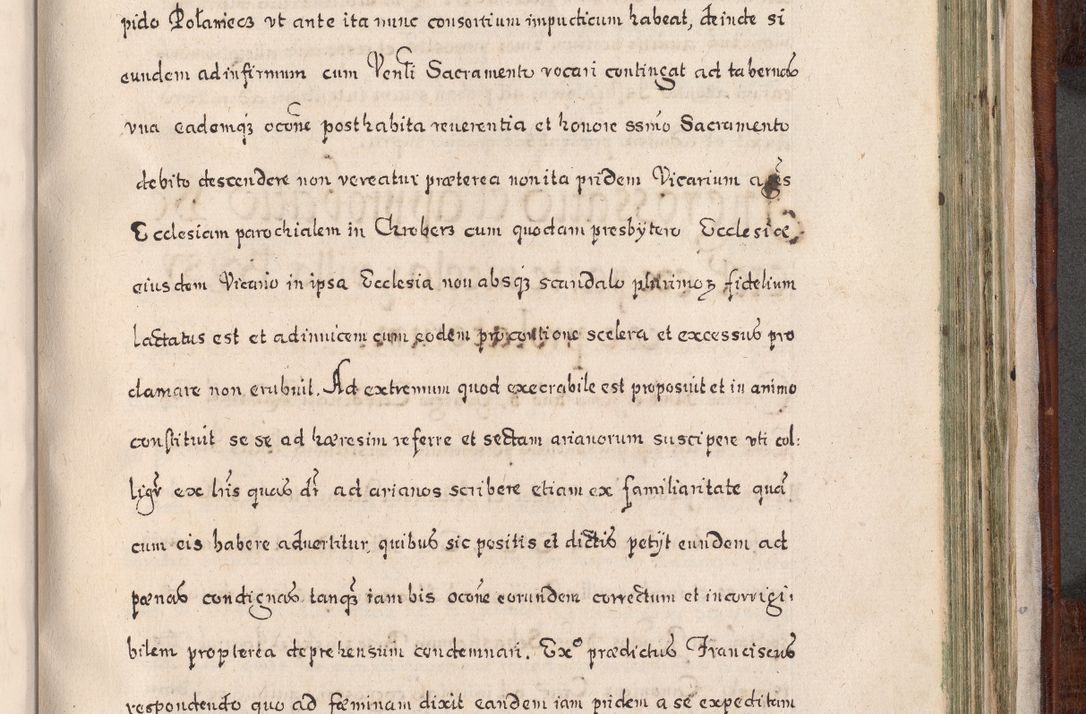 pido Połaniecz vt ante ita nunc consortium impudicum habeat, deinde si
eundem ad infirmum cum Venli Sacramento vocari contingat ad tabernas
vna eademq₃ ocone posthabita reuerentia et honore ssmo Sacramento
debito descendere non vereatur præterea non ita pridem Vicarium
Ecclesiam parochialem in Chroberz cum quodam presbytero Ecclesiæ
eiusdem Vicario in ipsa Ecclesia non absq₃ scandalo plurimoꝝ fidelium
luctatus est et adinuicem cum eodem pro contione scelera et excessus pro
clamare non erubuit. Ad extremum quod execrabile est proposuit et in animo
constituit se se ad hæresim referre et sectam arianorum suscipere vti col:
ligr ex lris quas dr ad arianos scribere etiam ex familiaritate quã
cum eis habere aduertitur, quibus sic positis et dictis petijt eundem ad
pænas condignas tanq₃ iam bis ocone eorundem correctum et incorrigi:
bilem propterea deprehensum condemnari. Exº prædictus Franciscus
respondendo quo ad fæminam dixit eandem iam pridem a se expeditam